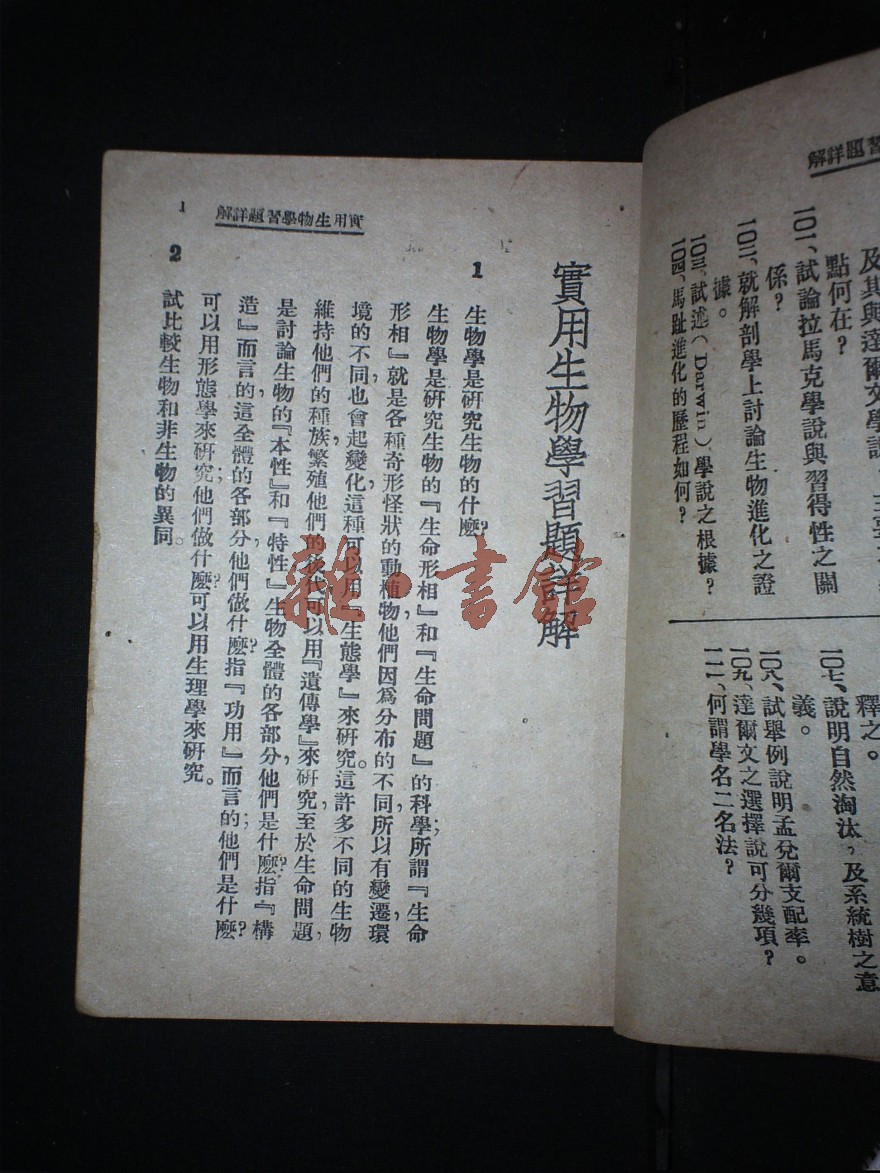 習題詳解
及其與達爾文學說
點何在？
一〇一、試論拉馬克學說與習得性之關
係？
一〇二、就解剖學上討論生物進化之證
據。
一〇三、試述（Darwin）學說之根據？
一〇四、馬趾進化的歷程如何？
釋之。
一〇七、說明自然淘汰，及系統樹之意
義。
一〇八、試舉例說明孟兌爾支配率。
一〇九、達爾文之選擇說可分幾項？
一一一、何謂學名二名法？
實用生物學習題詳解
1
實用生物學習題詳解
1 生物學是研究生物的什麼？
生物學是研究生物的『生命形相』和『生命問題』的科學；所謂『生命
形相』就是各種奇形怪狀的動植物，他們因爲分布的不同，所以有變遷，環
境的不同，也會起變化，這種可以用『生態學』來研究。這許多不同的生物
維持他們的種族，繁殖他們的後代，可以用『遺傳學』來研究，至於生命問題，
是討論生物的『本性』和『特性』，生物全體的各部分，他們是什麼？指『構
造』而言的，這全體的各部分，他們做什麼？指『功用』而言的；他們是什麼？
可以用形態學來研究；他們做什麼？可以用生理學來研究。
2 試比較生物和非生物的異同。
雜·書館